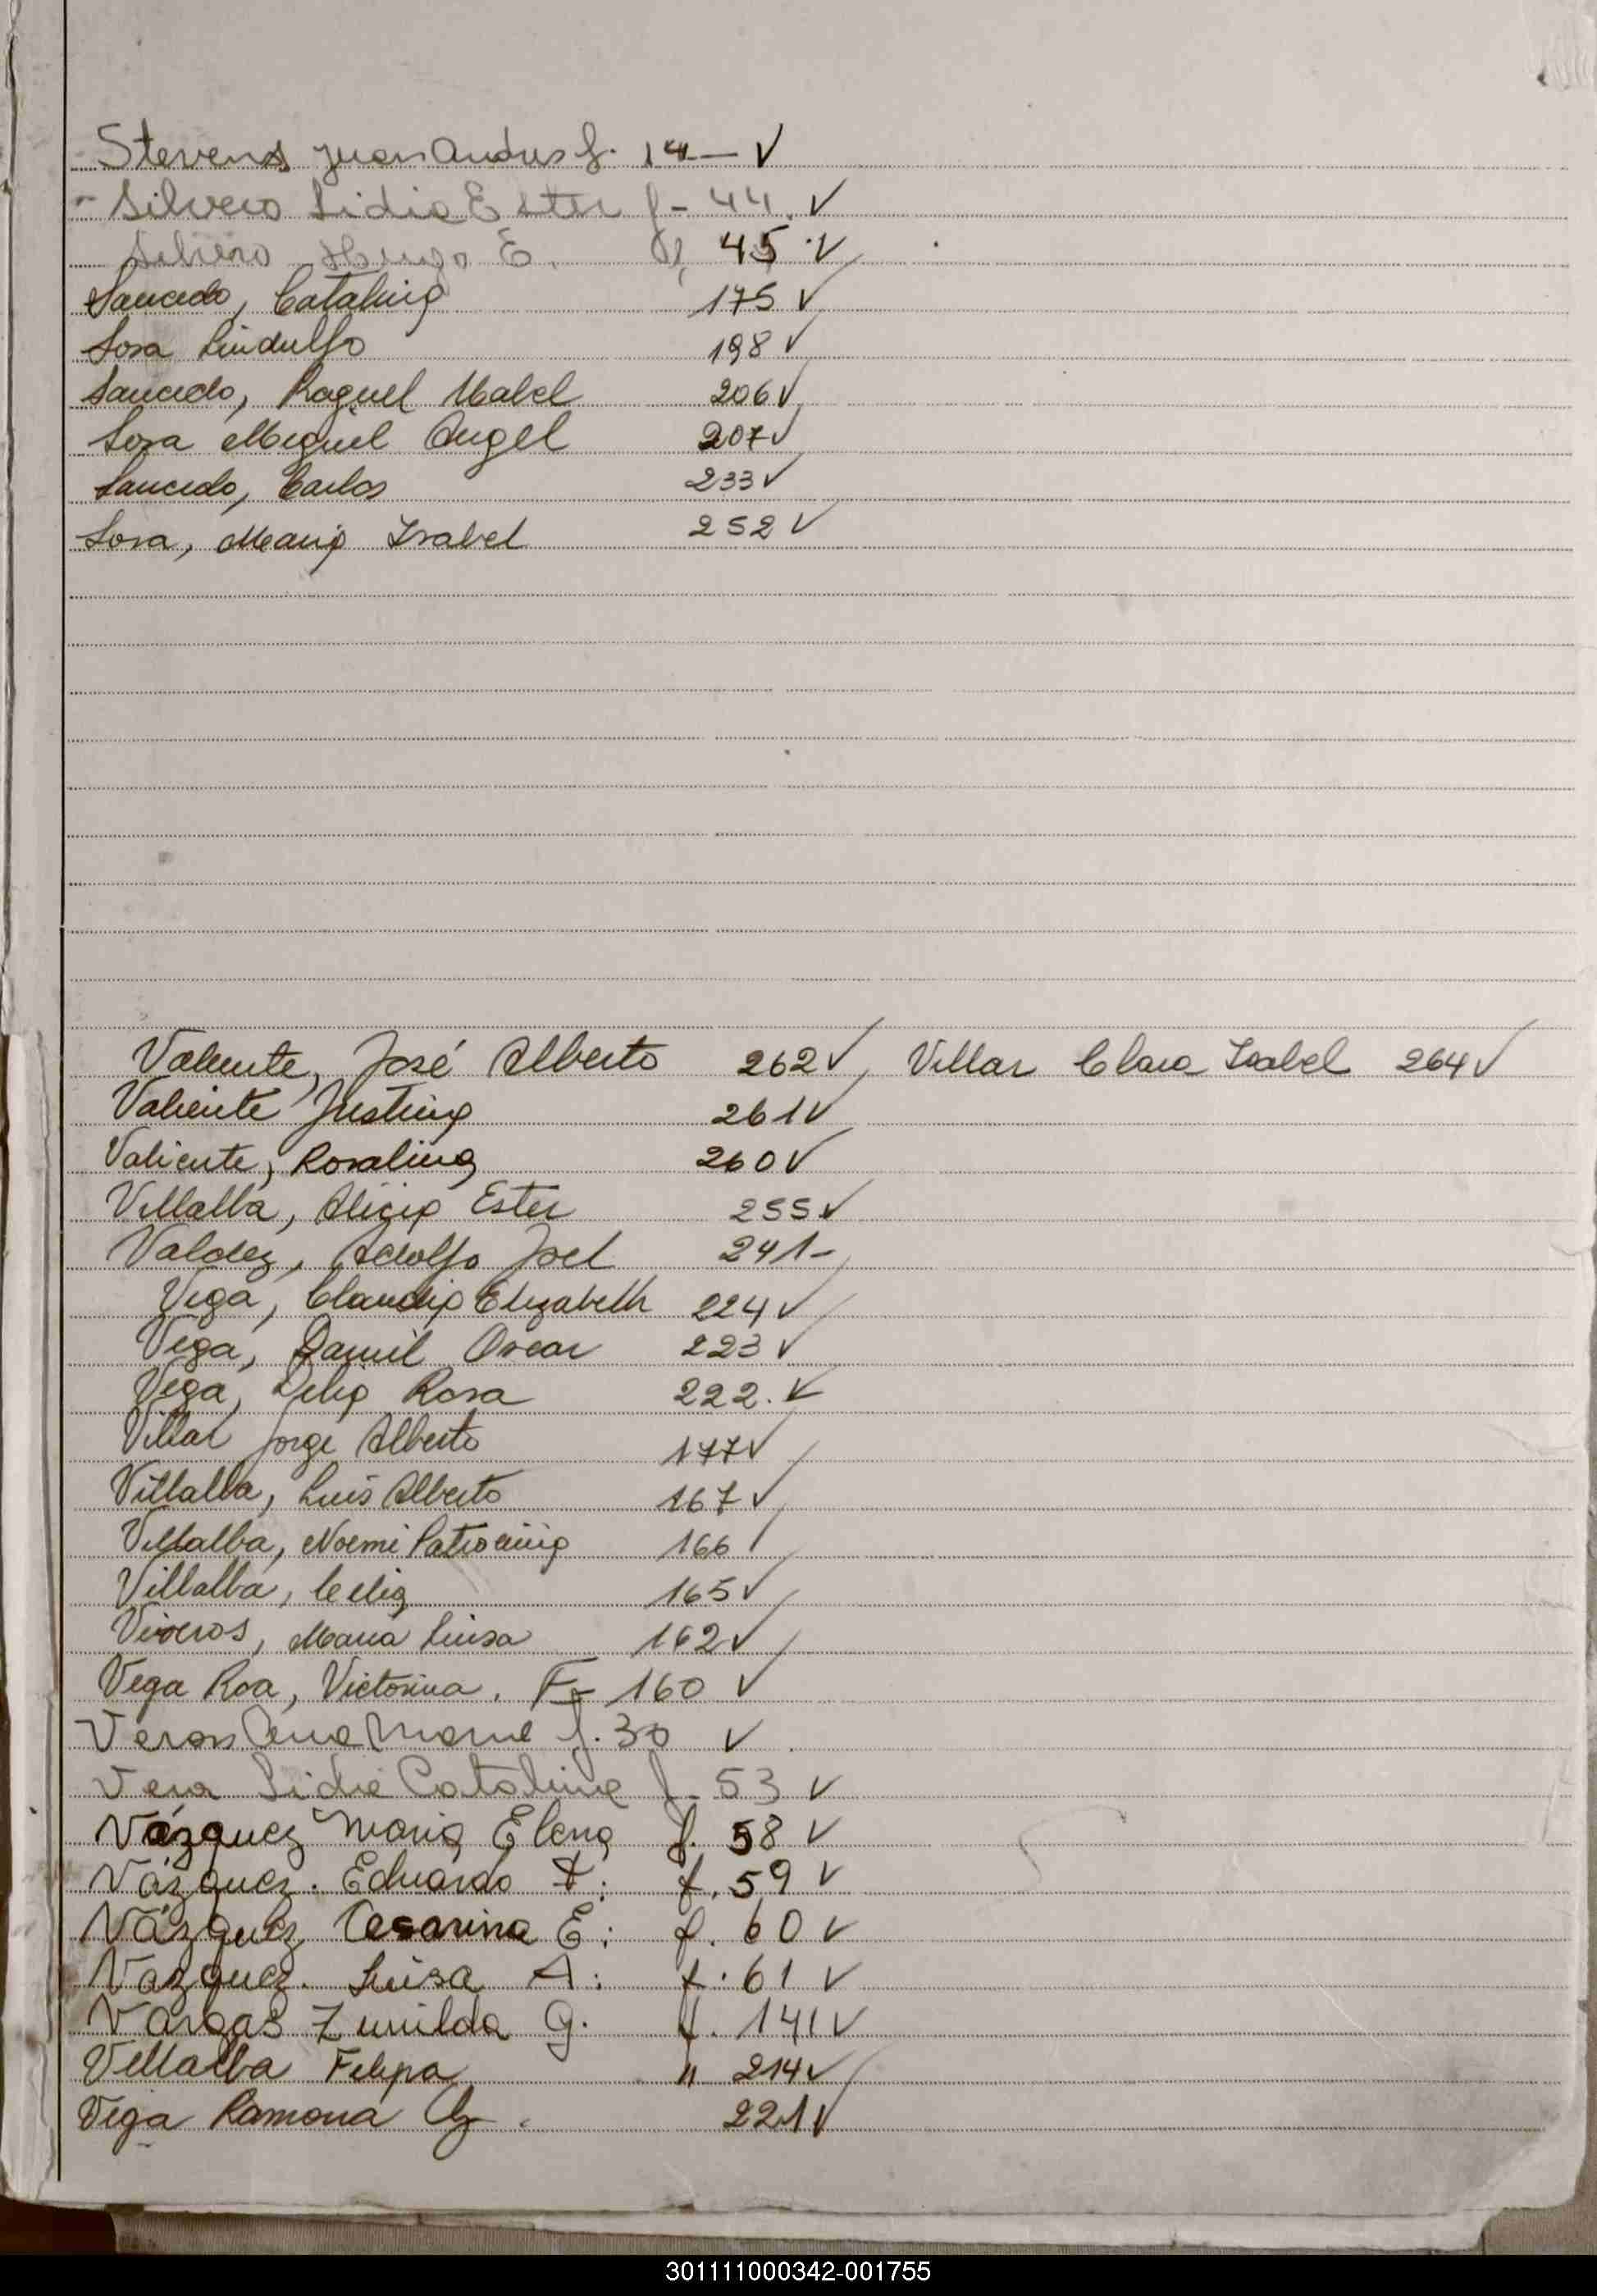 Stevens Juan Andres f. 14 — ✓
- Silvero Lidia Ester f - 44. ✓
Silvero Hugo E. f, 45 ✓
Saucedo, Catalina 175 ✓
Sosa Lindulfo 198 ✓
Saucedo, Raquel Mabel 206 ✓
Sosa Miguel Angel 207 ✓
Saucedo, Carlos 233 ✓
Sosa, Maria Isabel 252 ✓
Valiente, José Alberto 262 ✓ Villar Clara Isabel 264 ✓
Valiente Justina 261 ✓
Valiente, Rosalina 260 ✓
Villalba, Alicia Ester 255 ✓
Valdez, Adolfo Joel 241 -
Vega, Claudia Elizabeth 224 ✓
Vega, Daniel Oscar 223 ✓
Vega, Delia Rosa 222. ✓
Villar Jorge Alberto 177 ✓
Villalba, Luis Alberto 167 ✓
Villalba, Noemi Patrocinia 166 ✓
Villalba, Celia 165 ✓
Viveros, Maria Luisa 162 ✓
Vega Roa, Victorina. F- 160 ✓
Ana f. 30 ✓
Vera Lidia Catalina f. 53 ✓
Vázquez Maria Elena f. 58 ✓
Vázquez. Eduardo f. 59 ✓
Vázquez Cesarina E: f. 60 ✓
Vazquez. Luisa A: f. 61 ✓
Vargas Zunilda G. f. 141 ✓
Villalba Felipa " 214 ✓
Vega Ramona 221 ✓
301111000342-001755